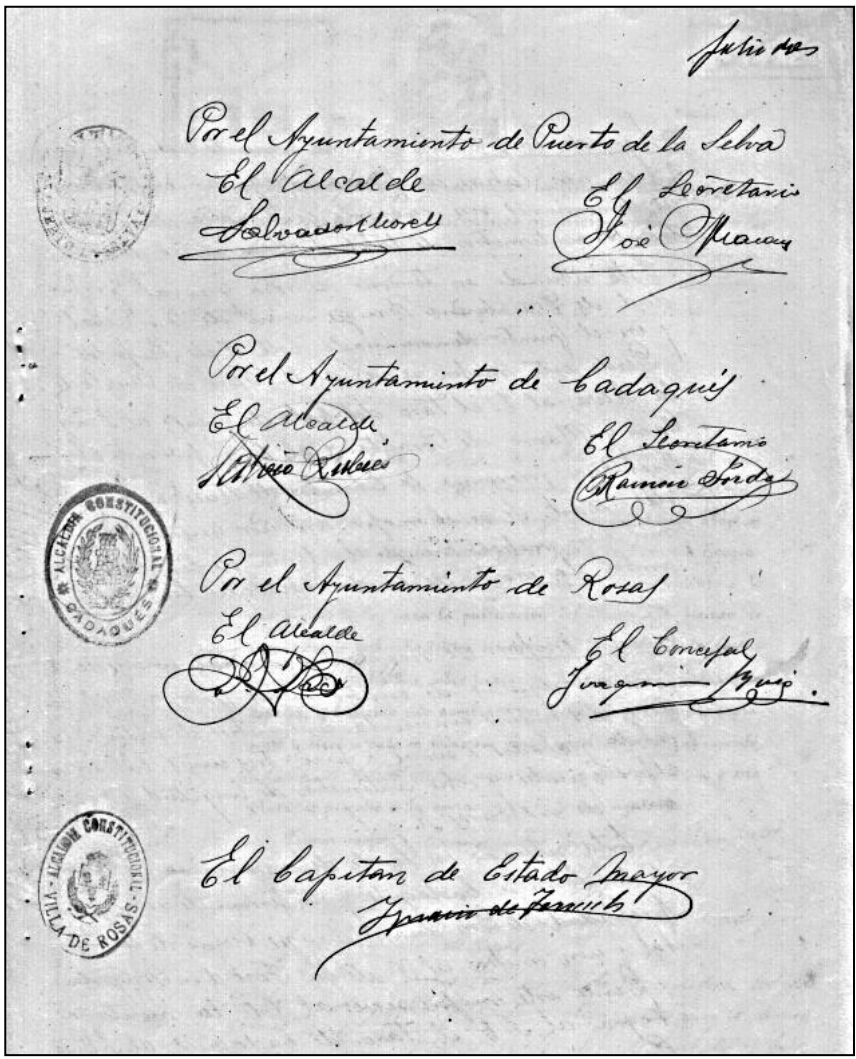 Por el Ayuntamiento de Puerto de la Selva
El Alcalde
El Secretario
Salvador Morell
José
Por el Ayuntamiento de Cadaqués
El Alcalde
El Secretario
Rubiés
Ramón
ALCALDIA CONSTITUCIONAL
CADAQUÉS
Por el Ayuntamiento de Rosas
El Alcalde
El Concejal
Joaquin Puig.
ALCALDIA CONSTITUCIONAL
VILLA DE ROSAS
El Capitan de Estado Mayor
Ignacio de